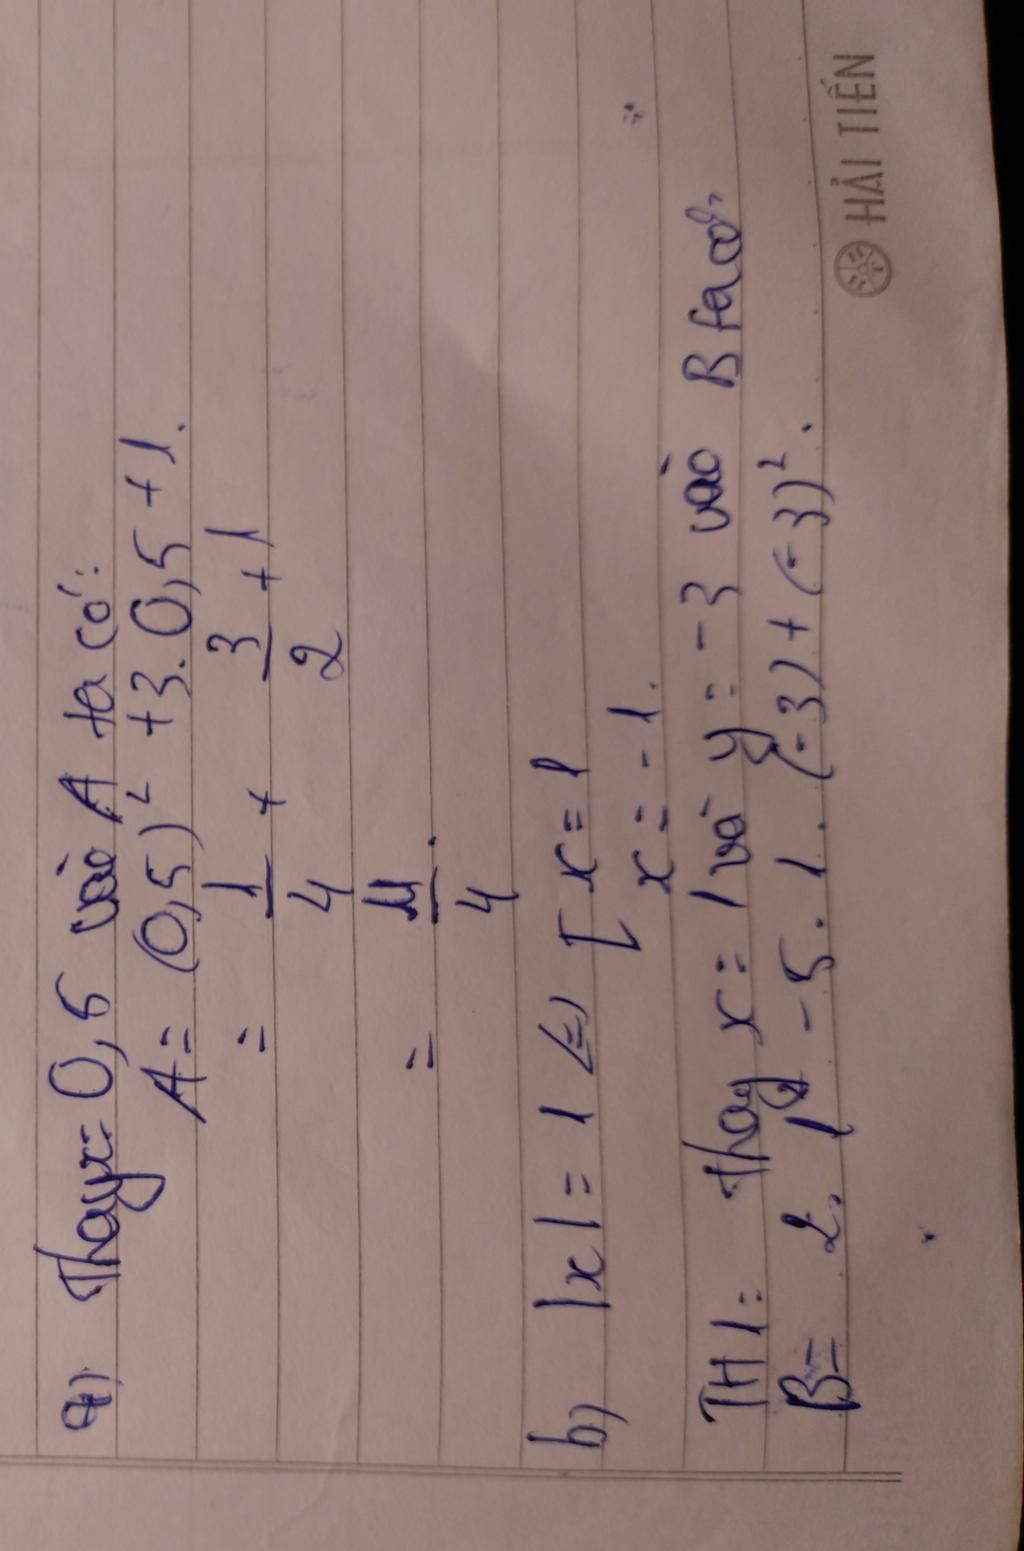 a) Thay x = 0,5 vào A ta có:
A = (0,5)² + 3.0,5 + 1.
= 1/4 + 3/2 + 1
= 11/4.
b) |x| = 1 <=> [ x = 1
x = -1.
TH1: Thay x = 1 và y = -3 vào B ta có:
B = 2. 1² - 5. 1. (-3) + (-3)².
HẢI TIẾN